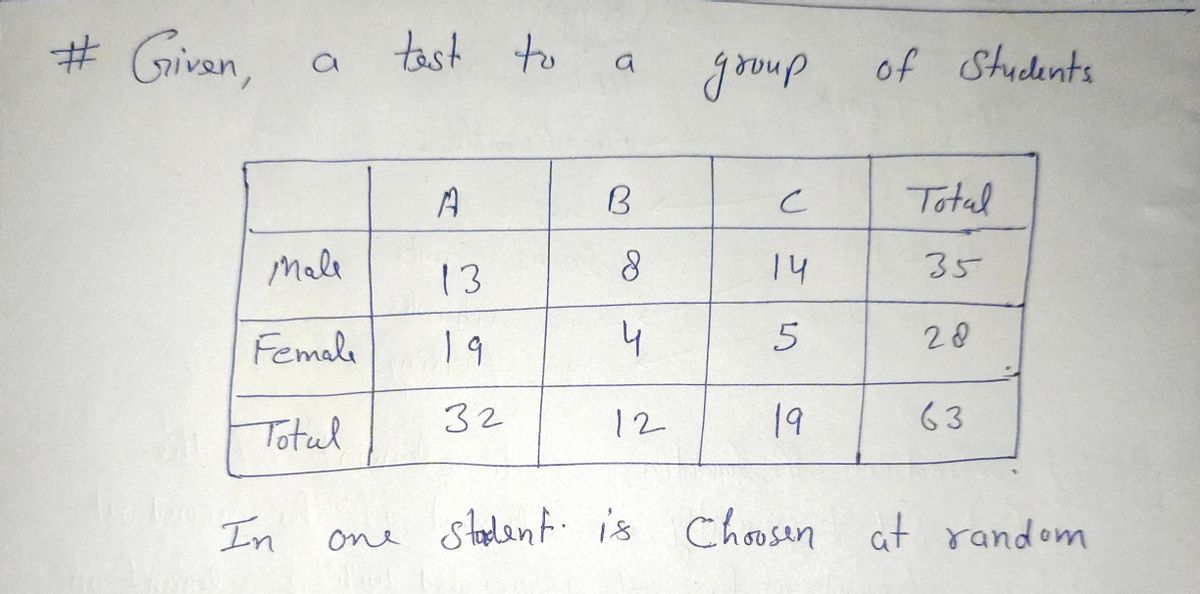 # Given, a test to a group of Students
A B C Total
Male 13 8 14 35
Female 19 4 5 28
Total 32 12 19 63
In one student. is Choosen at random